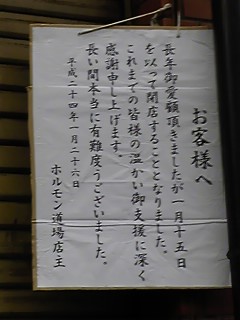 お客様へ
長年御愛顧頂きましたが一月十五日
を以って閉店することとなりました。
これまでの皆様の温かい御支援に深く
感謝申し上げます。
長い間本当に有難度うございました。
平成二十四年一月二十六日
ホルモン道場店主